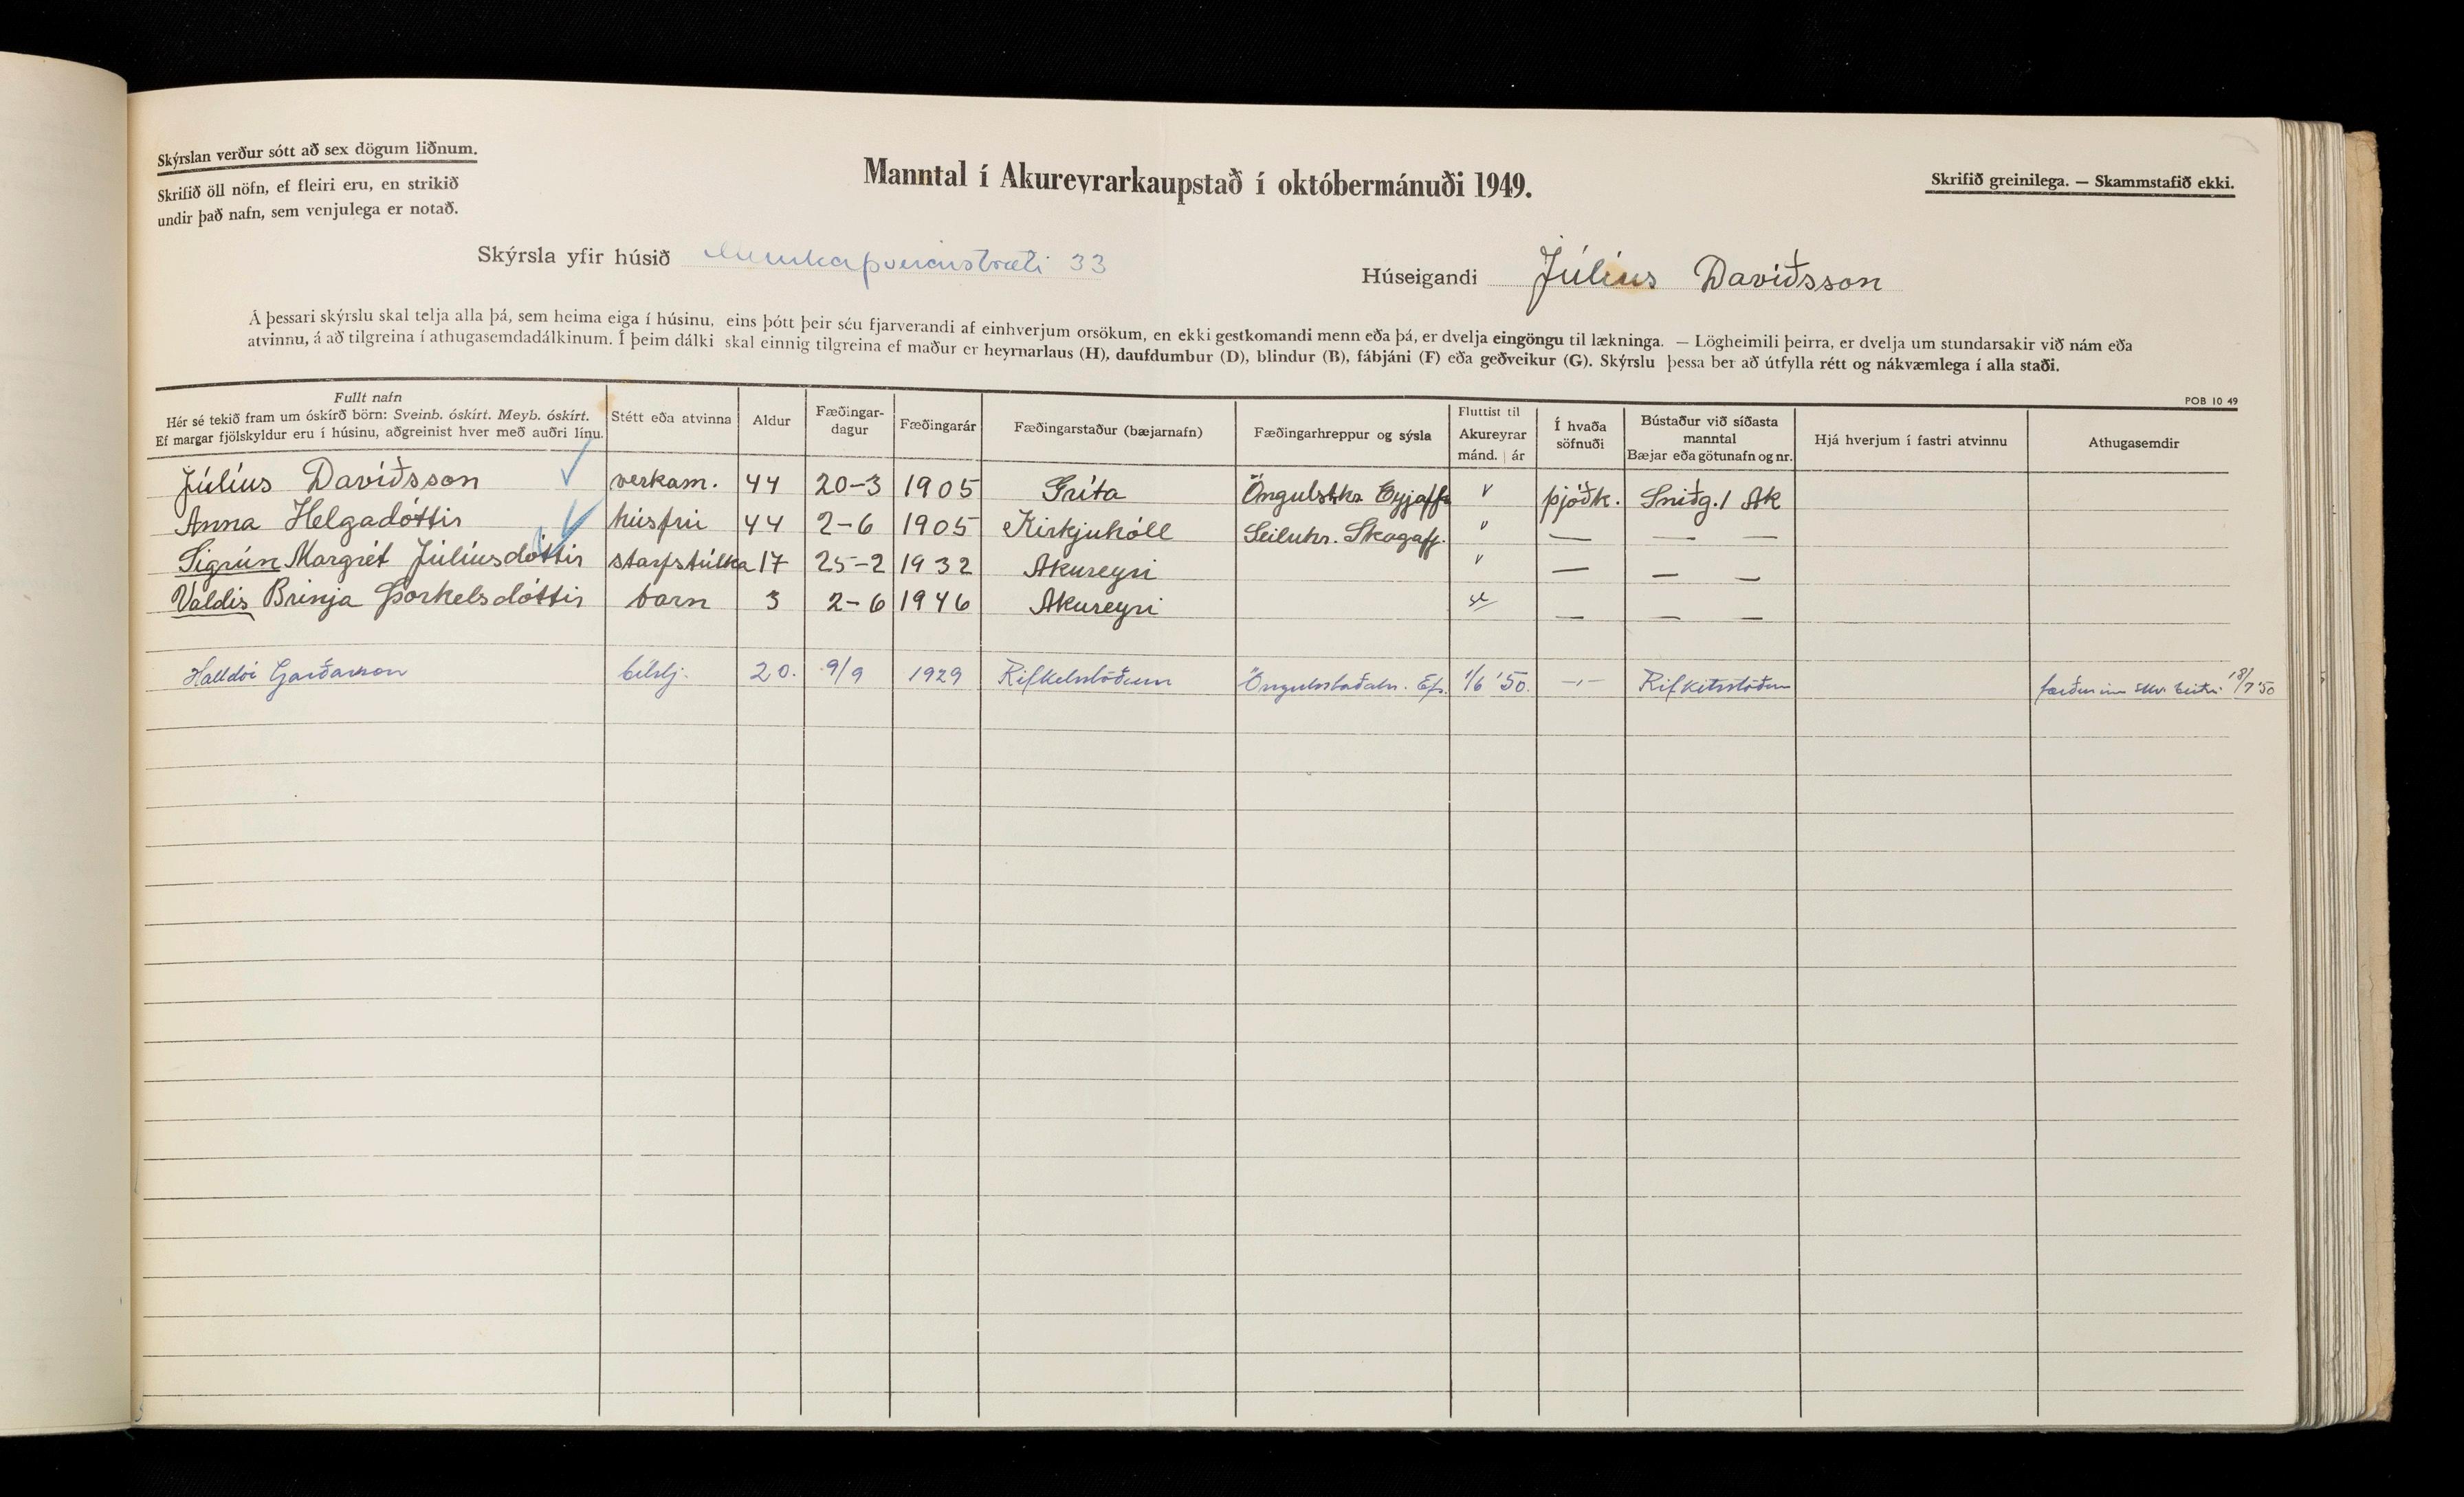 Skýrslan verður sótt að sex dögum liðnum.
Skrifið öll nöfn, ef fleiri eru, en strikið
undir það nafn, sem venjulega er notað.
Manntal í Akureyrarkaupstað í októbermánuði 1949.
Skrifið greinilega. — Skammstafið ekki.
Skýrsla yfir húsið Munkaþverárstræti 33
Húseigandi Júlíus Davíðsson
Á þessari skýrslu skal telja alla þá, sem heima eiga í húsinu, eins þótt þeir séu fjarverandi af einhverjum orsökum, en ekki gestkomandi menn eða þá, er dvelja eingöngu til lækninga. — Lögheimili þeirra, er dvelja um stundarsakir við nám eða
atvinnu, á að tilgreina í athugasemdadálkinum. Í þeim dálki skal einnig tilgreina ef maður er heyrnarlaus (H), daufdumbur (D), blindur (B), fábjáni (F) eða geðveikur (G). Skýrslu þessa ber að útfylla rétt og nákvæmlega í alla staði.
POB 10 49
Fullt nafn
Hér sé tekið fram um óskírð börn: Sveinb. óskírt. Meyb. óskírt.
Ef margar fjölskyldur eru í húsinu, aðgreinist hver með auðri línu.
Stétt eða atvinna
Aldur
Fæðingar-
dagur
Fæðingarár
Fæðingarstaður (bæjarnafn)
Fæðingarhreppur og sýsla
Fluttist til
Akureyrar
mánd. | ár
Í hvaða
söfnuði
Bústaður við síðasta
manntal
Bæjar eða götunafn og nr.
Hjá hverjum í fastri atvinnu
Athugasemdir
Júlíus Davíðsson verkam. 44 20-3 1905 Gríta Öngulsthr Eyjaffs v þjóðk. Sniðg. 1 Ak
Anna Helgadóttir húsfrú 44 2-6 1905 Kirkjuhóll Seiluhr. Skagaff. " — — —
Sigrún Margrét Júlíusdóttir starfstúlka 17 25-2 1932 Akureyri v — — —
Valdís Brinja Þorkelsdóttir barn 3 2-6 1946 Akureyri — — —
Halldór Garðarsson bílstj. 20. 9/9 1929 Rifkelsstöðum Öngulsstaðahr. Ef. 1/6 '50. —"— Rifkelsstöðum 18/7 '50